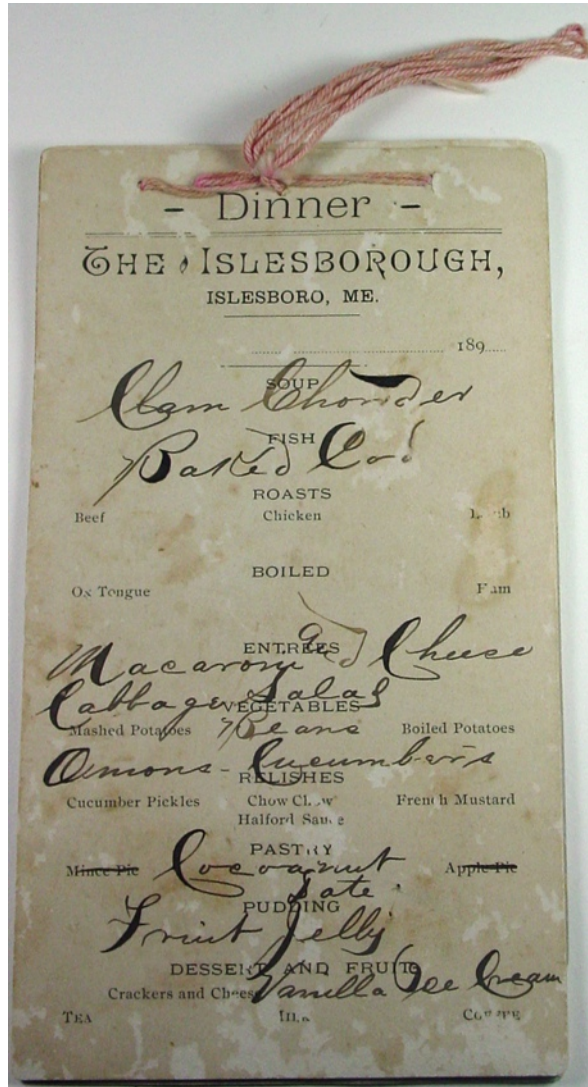 - Dinner -
THE ISLESBOROUGH,
ISLESBORO, ME.
189
SOUP
Clam Chowder
FISH
Baked Cod
ROASTS
Beef Chicken Lamb
BOILED
Ox Tongue Ham
ENTREES
Macaroni and Cheese
Cabbage Salad
VEGETABLES
Mashed Potatoes Beans Boiled Potatoes
Onions - Cucumbers
RELISHES
Cucumber Pickles Chow Chow French Mustard
Halford Sauce
PASTRY
Mince Pie Cocoanut Apple Pie
PUDDING
Fruit Jelly
DESSERT AND FRUIT
Crackers and Cheese Vanilla Ice Cream
TEA MILK COFFEE